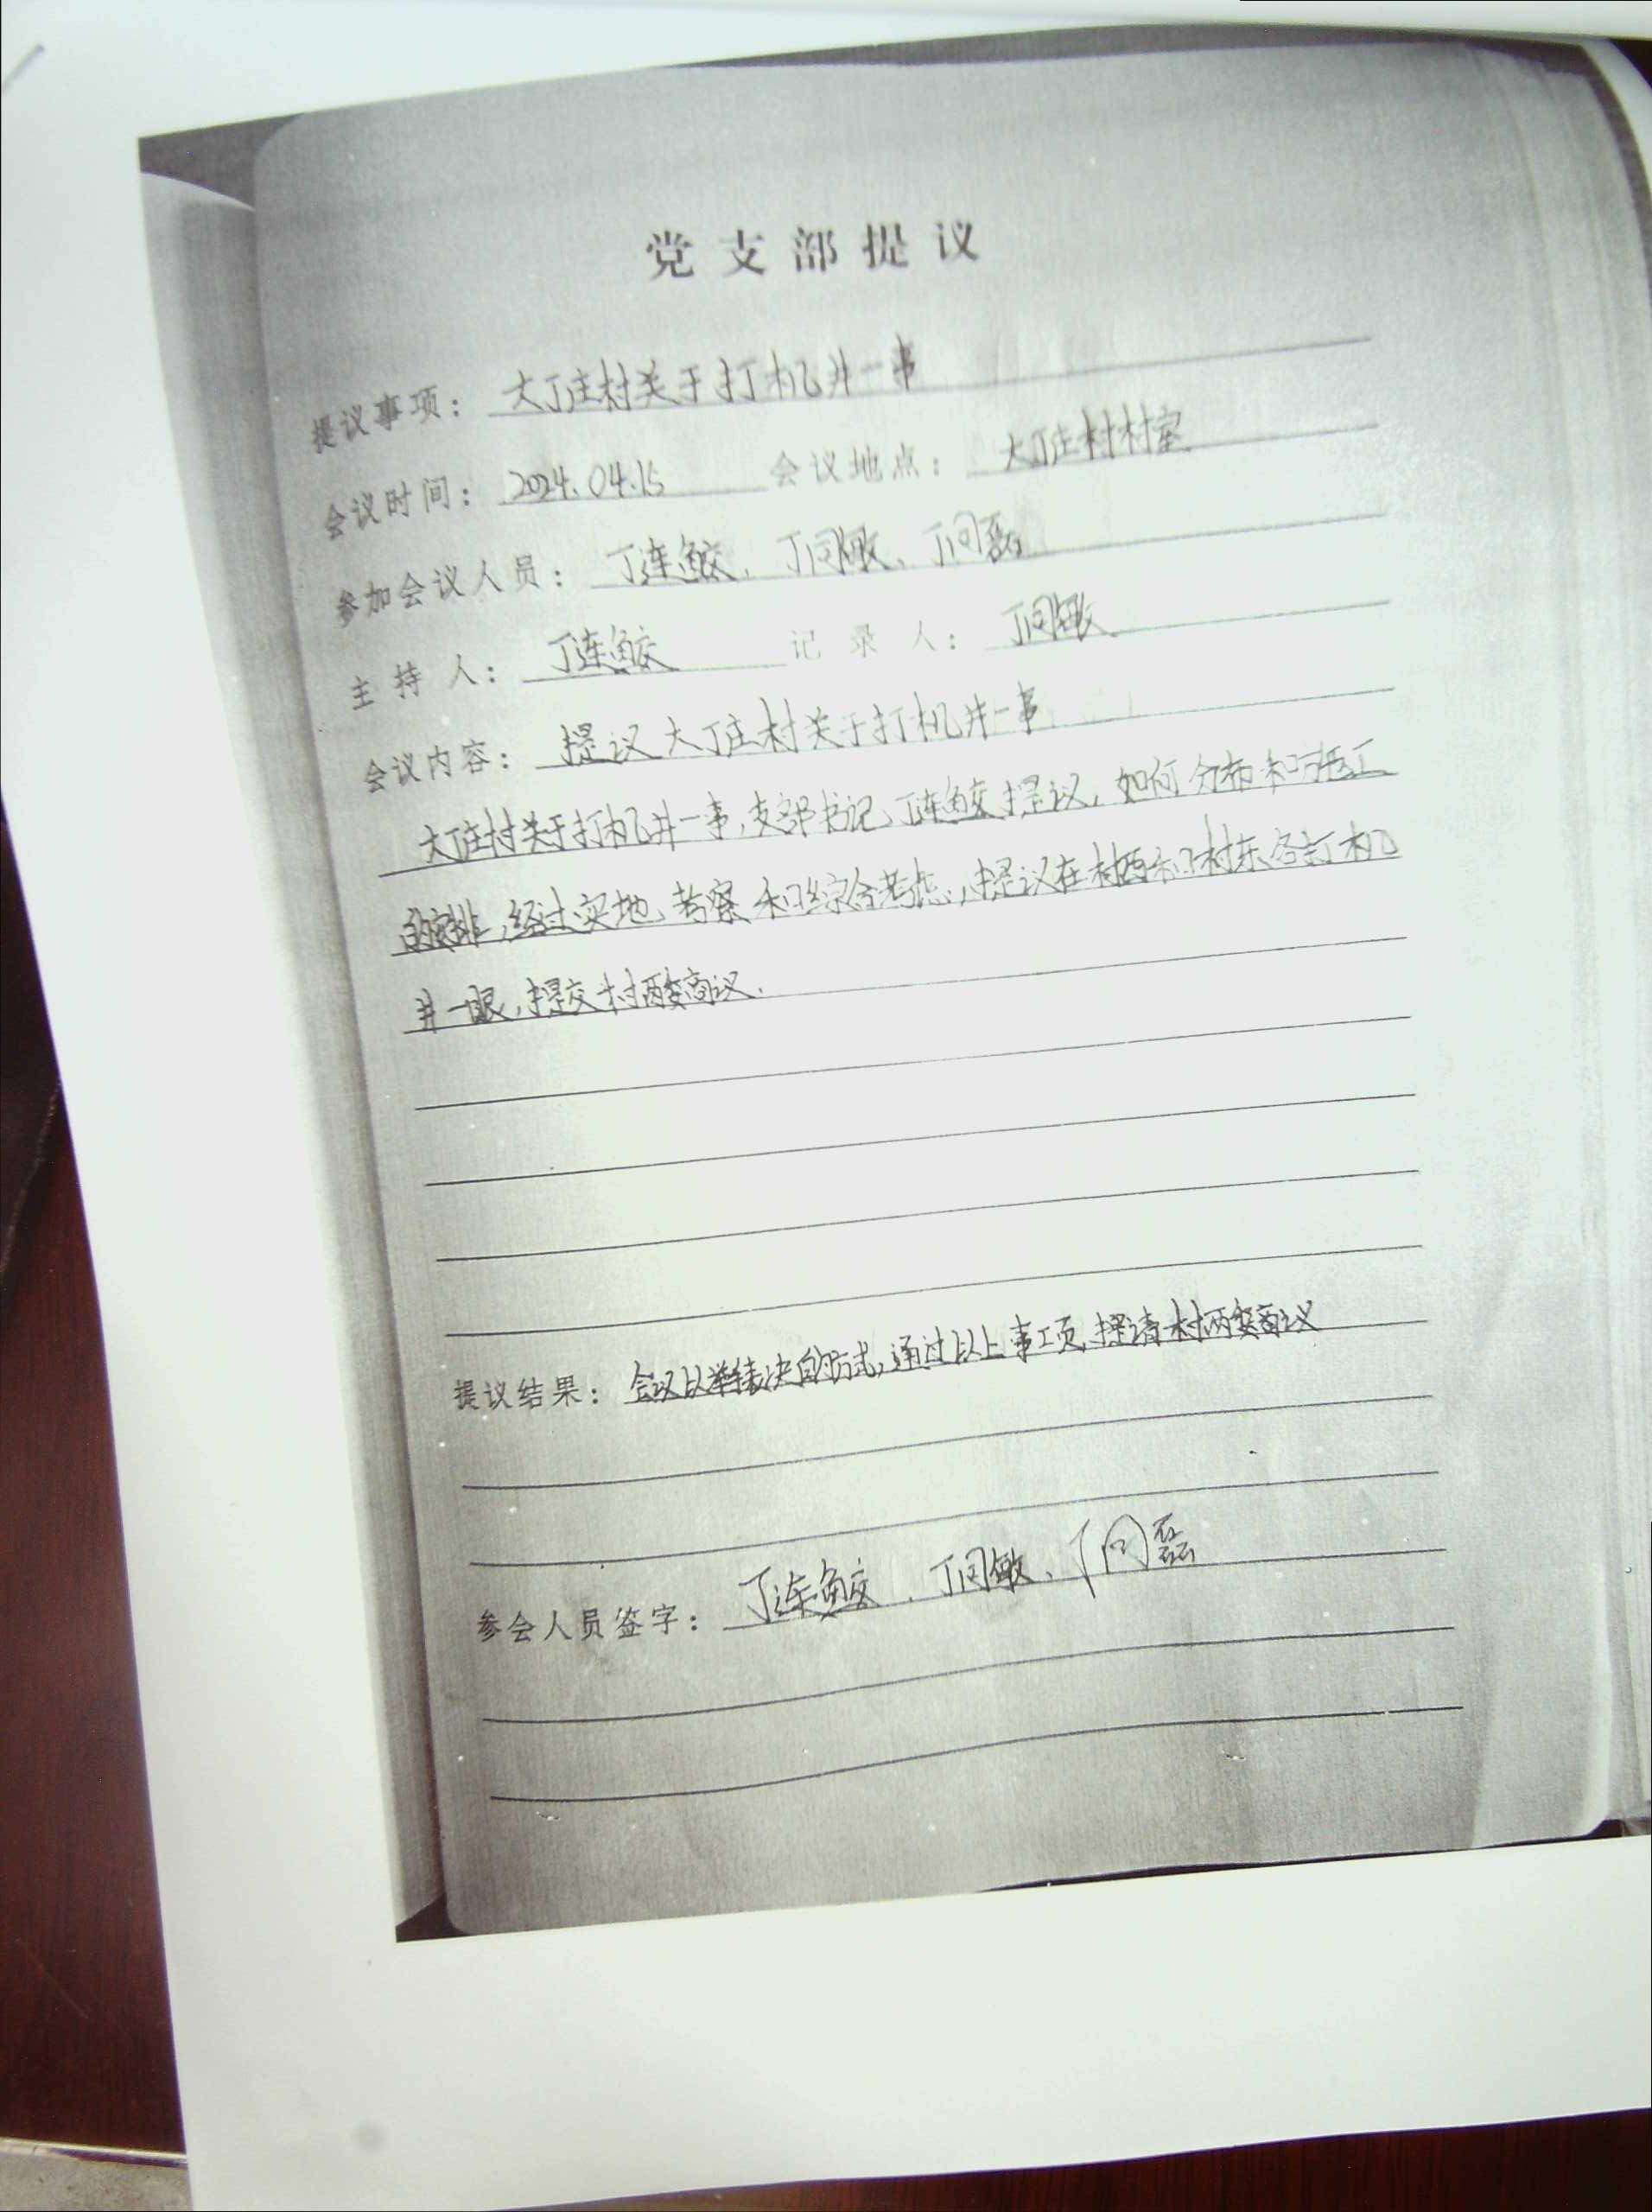 党支部提议
提议事项: 大丁庄村关于打机井一事
会议时间: 2024.04.15 会议地点: 大丁庄村村室
参加会议人员: 丁连鲛、丁同敏、丁同磊
主持人: 丁连鲛 记录人: 丁同敏
会议内容: 提议大丁庄村关于打机井一事
大丁庄村关于打机井一事,支部书记丁连鲛提议,如何分布和
的安排,经过实地考察和综合考虑,提议在村西和村东各打机
井一眼,提交村两委商议.
提议结果: 会议以举手表决的方式,通过以上事项,提请村两委商议
参会人员签字: 丁连鲛、丁同敏、丁同磊